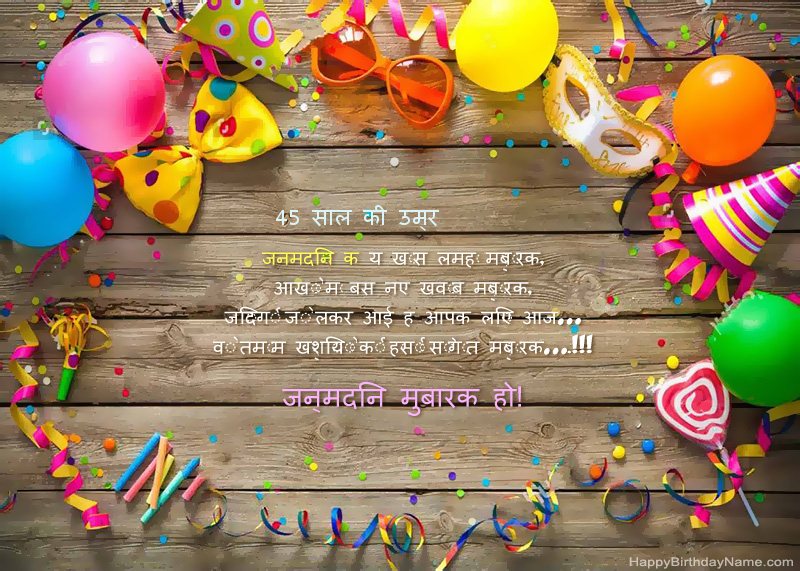 45 साल की उम्र
जनमदनि क य ख़ास लमहा मुबारक,
आखों में बसे नए ख्वाब मुबारक,
जिंदगी जो लेकर आई है आपके लिए आज...
वो तमाम खुशियों की हंसी सौगात मुबारक...!!!
जन्मदिन मुबारक हो!
HappyBirthdayName.com